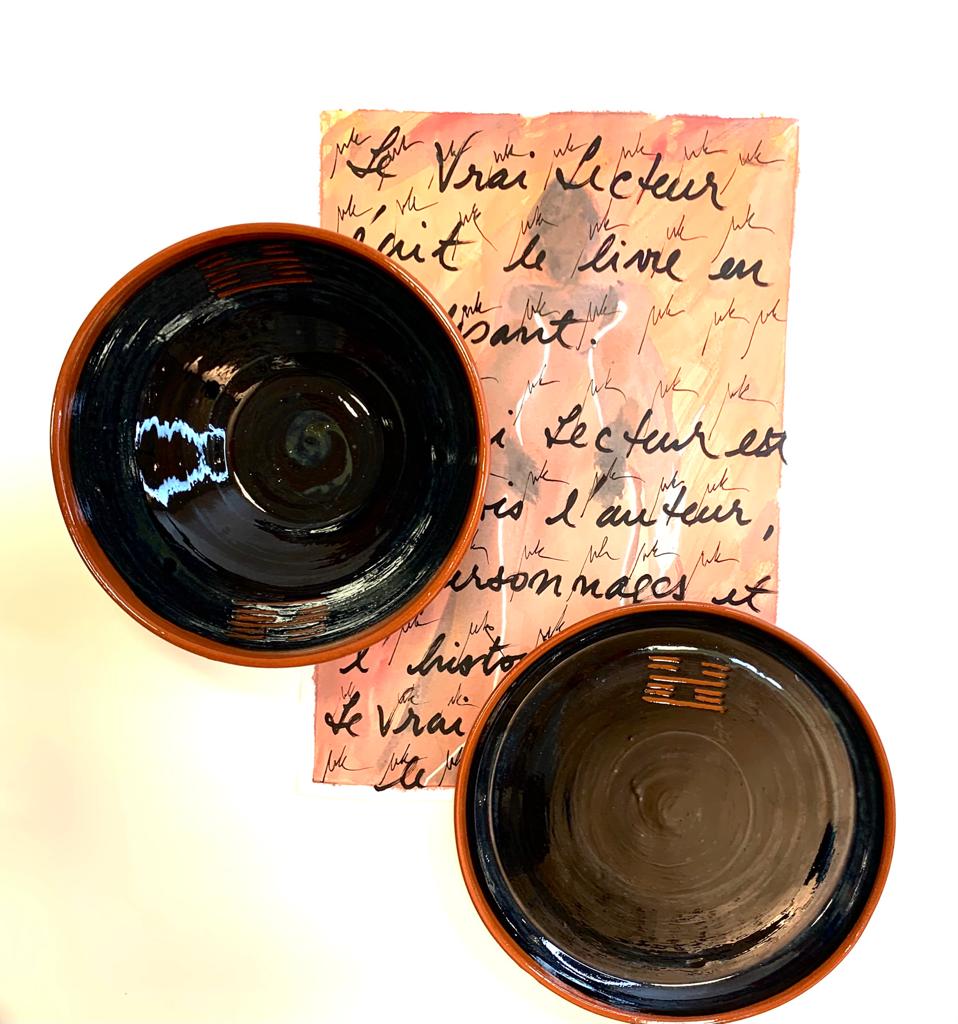 Le Vrai Lecteur
le livre en
sant.
i Lecteur est
is l'auteur,
ersonnages et
l'histo
Le Vrai
le